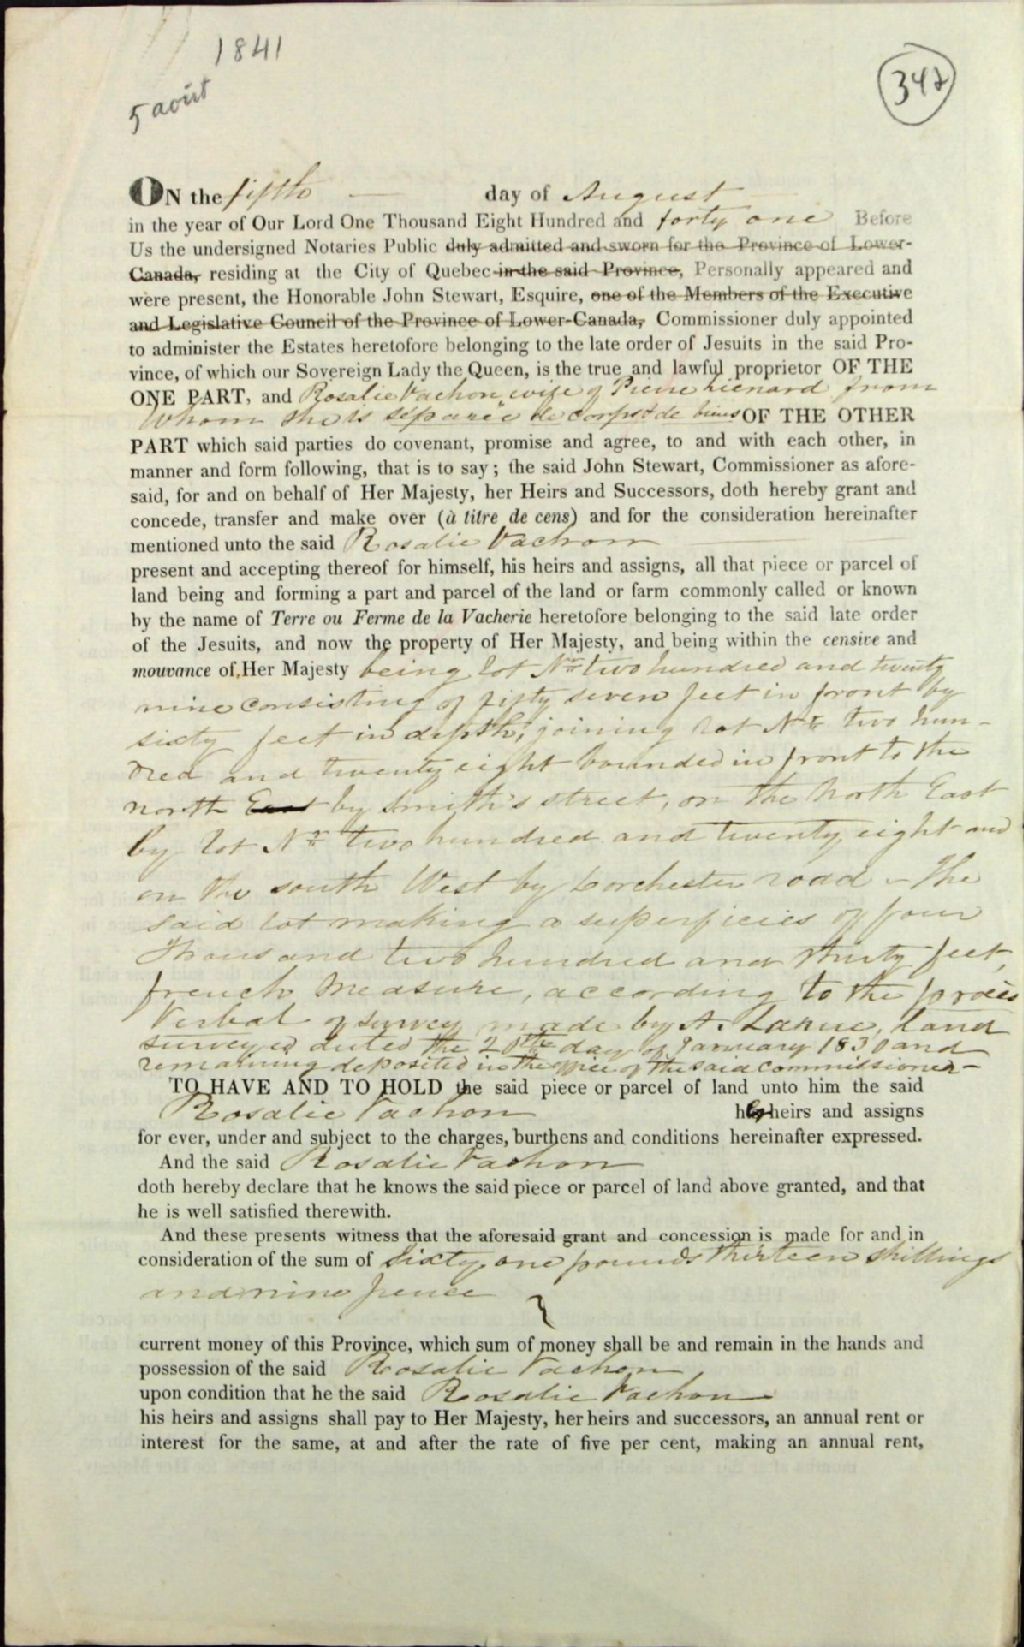 1841
5 août
342
ON the fifth day of August
in the year of Our Lord One Thousand Eight Hundred and forty one Before
Us the undersigned Notaries Public duly admitted and sworn for the Province of Lower-
Canada, residing at the City of Quebec in the said Province, Personally appeared and
were present, the Honorable John Stewart, Esquire, one of the Members of the Executive
and Legislative Council of the Province of Lower-Canada, Commissioner duly appointed
to administer the Estates heretofore belonging to the late order of Jesuits in the said Pro-
vince, of which our Sovereign Lady the Queen, is the true and lawful proprietor OF THE
ONE PART, and Rosalie Vachon, wife of Pierre Lienard from
Whom she is séparée de corps et de biens OF THE OTHER
PART which said parties do covenant, promise and agree, to and with each other, in
manner and form following, that is to say; the said John Stewart, Commissioner as afore-
said, for and on behalf of Her Majesty, her Heirs and Successors, doth hereby grant and
concede, transfer and make over (à titre de cens) and for the consideration hereinafter
mentioned unto the said Rosalie Vachon
present and accepting thereof for himself, his heirs and assigns, all that piece or parcel of
land being and forming a part and parcel of the land or farm commonly called or known
by the name of Terre ou Ferme de la Vacherie heretofore belonging to the said late order
of the Jesuits, and now the property of Her Majesty, and being within the censive and
mouvance of Her Majesty being lot No. two hundred and twenty
nine consisting of fifty seven feet in front by
sixty feet in depth, joining lot No. two hun-
dred and twenty eight bounded in front to the
north East by Smith's street, on the North East
by lot No. two hundred and twenty eight and
on the south West by Dorchester road – The
said lot making a superficies of four
Thousand two hundred and thirty feet,
french Measure, according to the procès
Verbal of survey made by A. Larue, land
surveyor dated the 20th day of January 1830 and
remaining deposited in the office of the said Commissioner –
TO HAVE AND TO HOLD the said piece or parcel of land unto him the said
Rosalie Vachon her heirs and assigns
for ever, under and subject to the charges, burthens and conditions hereinafter expressed.
And the said Rosalie Vachon
doth hereby declare that he knows the said piece or parcel of land above granted, and that
he is well satisfied therewith.
And these presents witness that the aforesaid grant and concession is made for and in
consideration of the sum of Sixty one pounds thirteen shillings
and nine pence
current money of this Province, which sum of money shall be and remain in the hands and
possession of the said Rosalie Vachon
upon condition that he the said Rosalie Vachon
his heirs and assigns shall pay to Her Majesty, her heirs and successors, an annual rent or
interest for the same, at and after the rate of five per cent, making an annual rent,